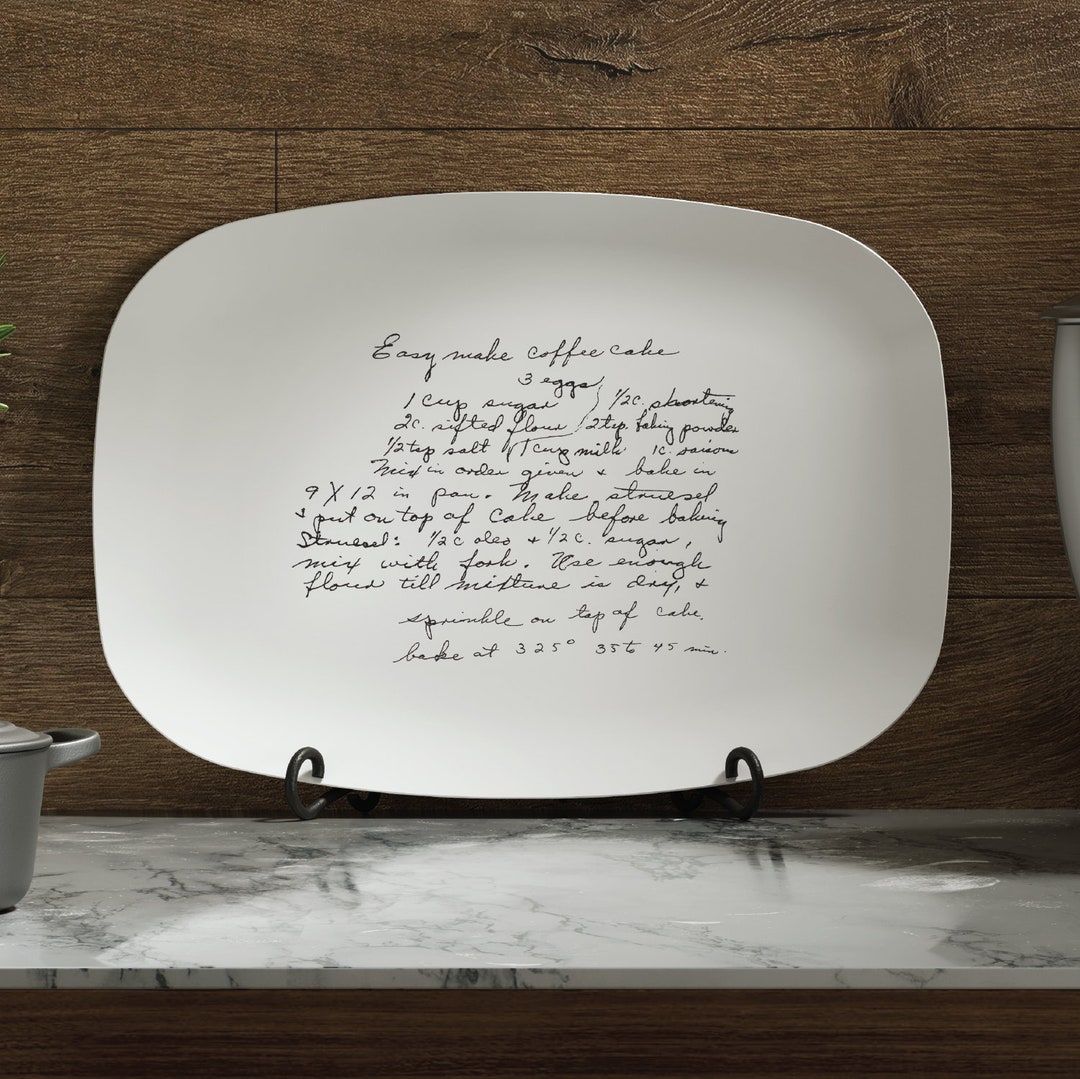 Easy make coffee cake
3 eggs
1 cup sugar 1/2c. shortening
2c. sifted flour 2 tsp. baking powder
1/2 tsp salt 1 cup milk 1c. raisins
Mix in order given + bake in
9 X 12 in pan. Make struesel
+ put on top of cake before baking
Struesel: 1/2 c oleo + 1/2 c. sugar,
mix with fork. Use enough
flour till mixture is dry, +
sprinkle on top of cake.
bake at 325° 35 to 45 min.